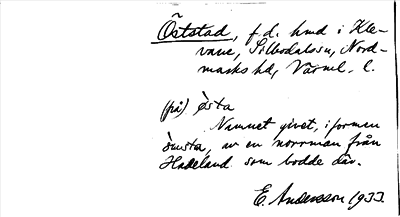 Öststad, f.d. hmd i Kle-
vane, Sillbodalssn, Nord-
marks hd, Värml. l.
(på) ò̈sta
Namnet givet, i formen
ö̀msta, av en norrman från
Hadeland som bodde där.
E. Andersson 1933.